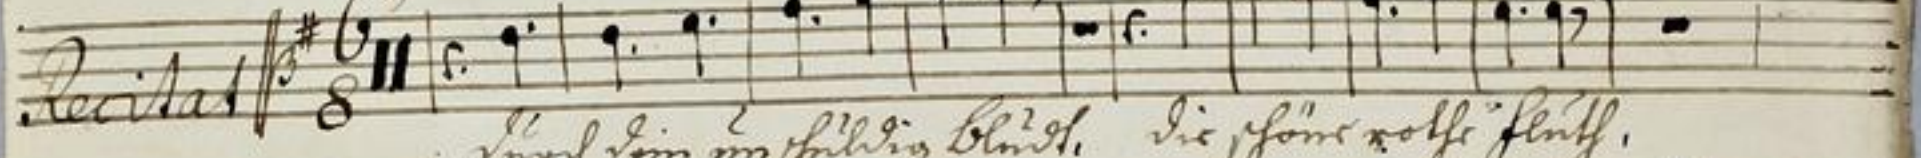 Recitat 6 8
durch dein unschuldig Bludt, die schöne rothe fluth.